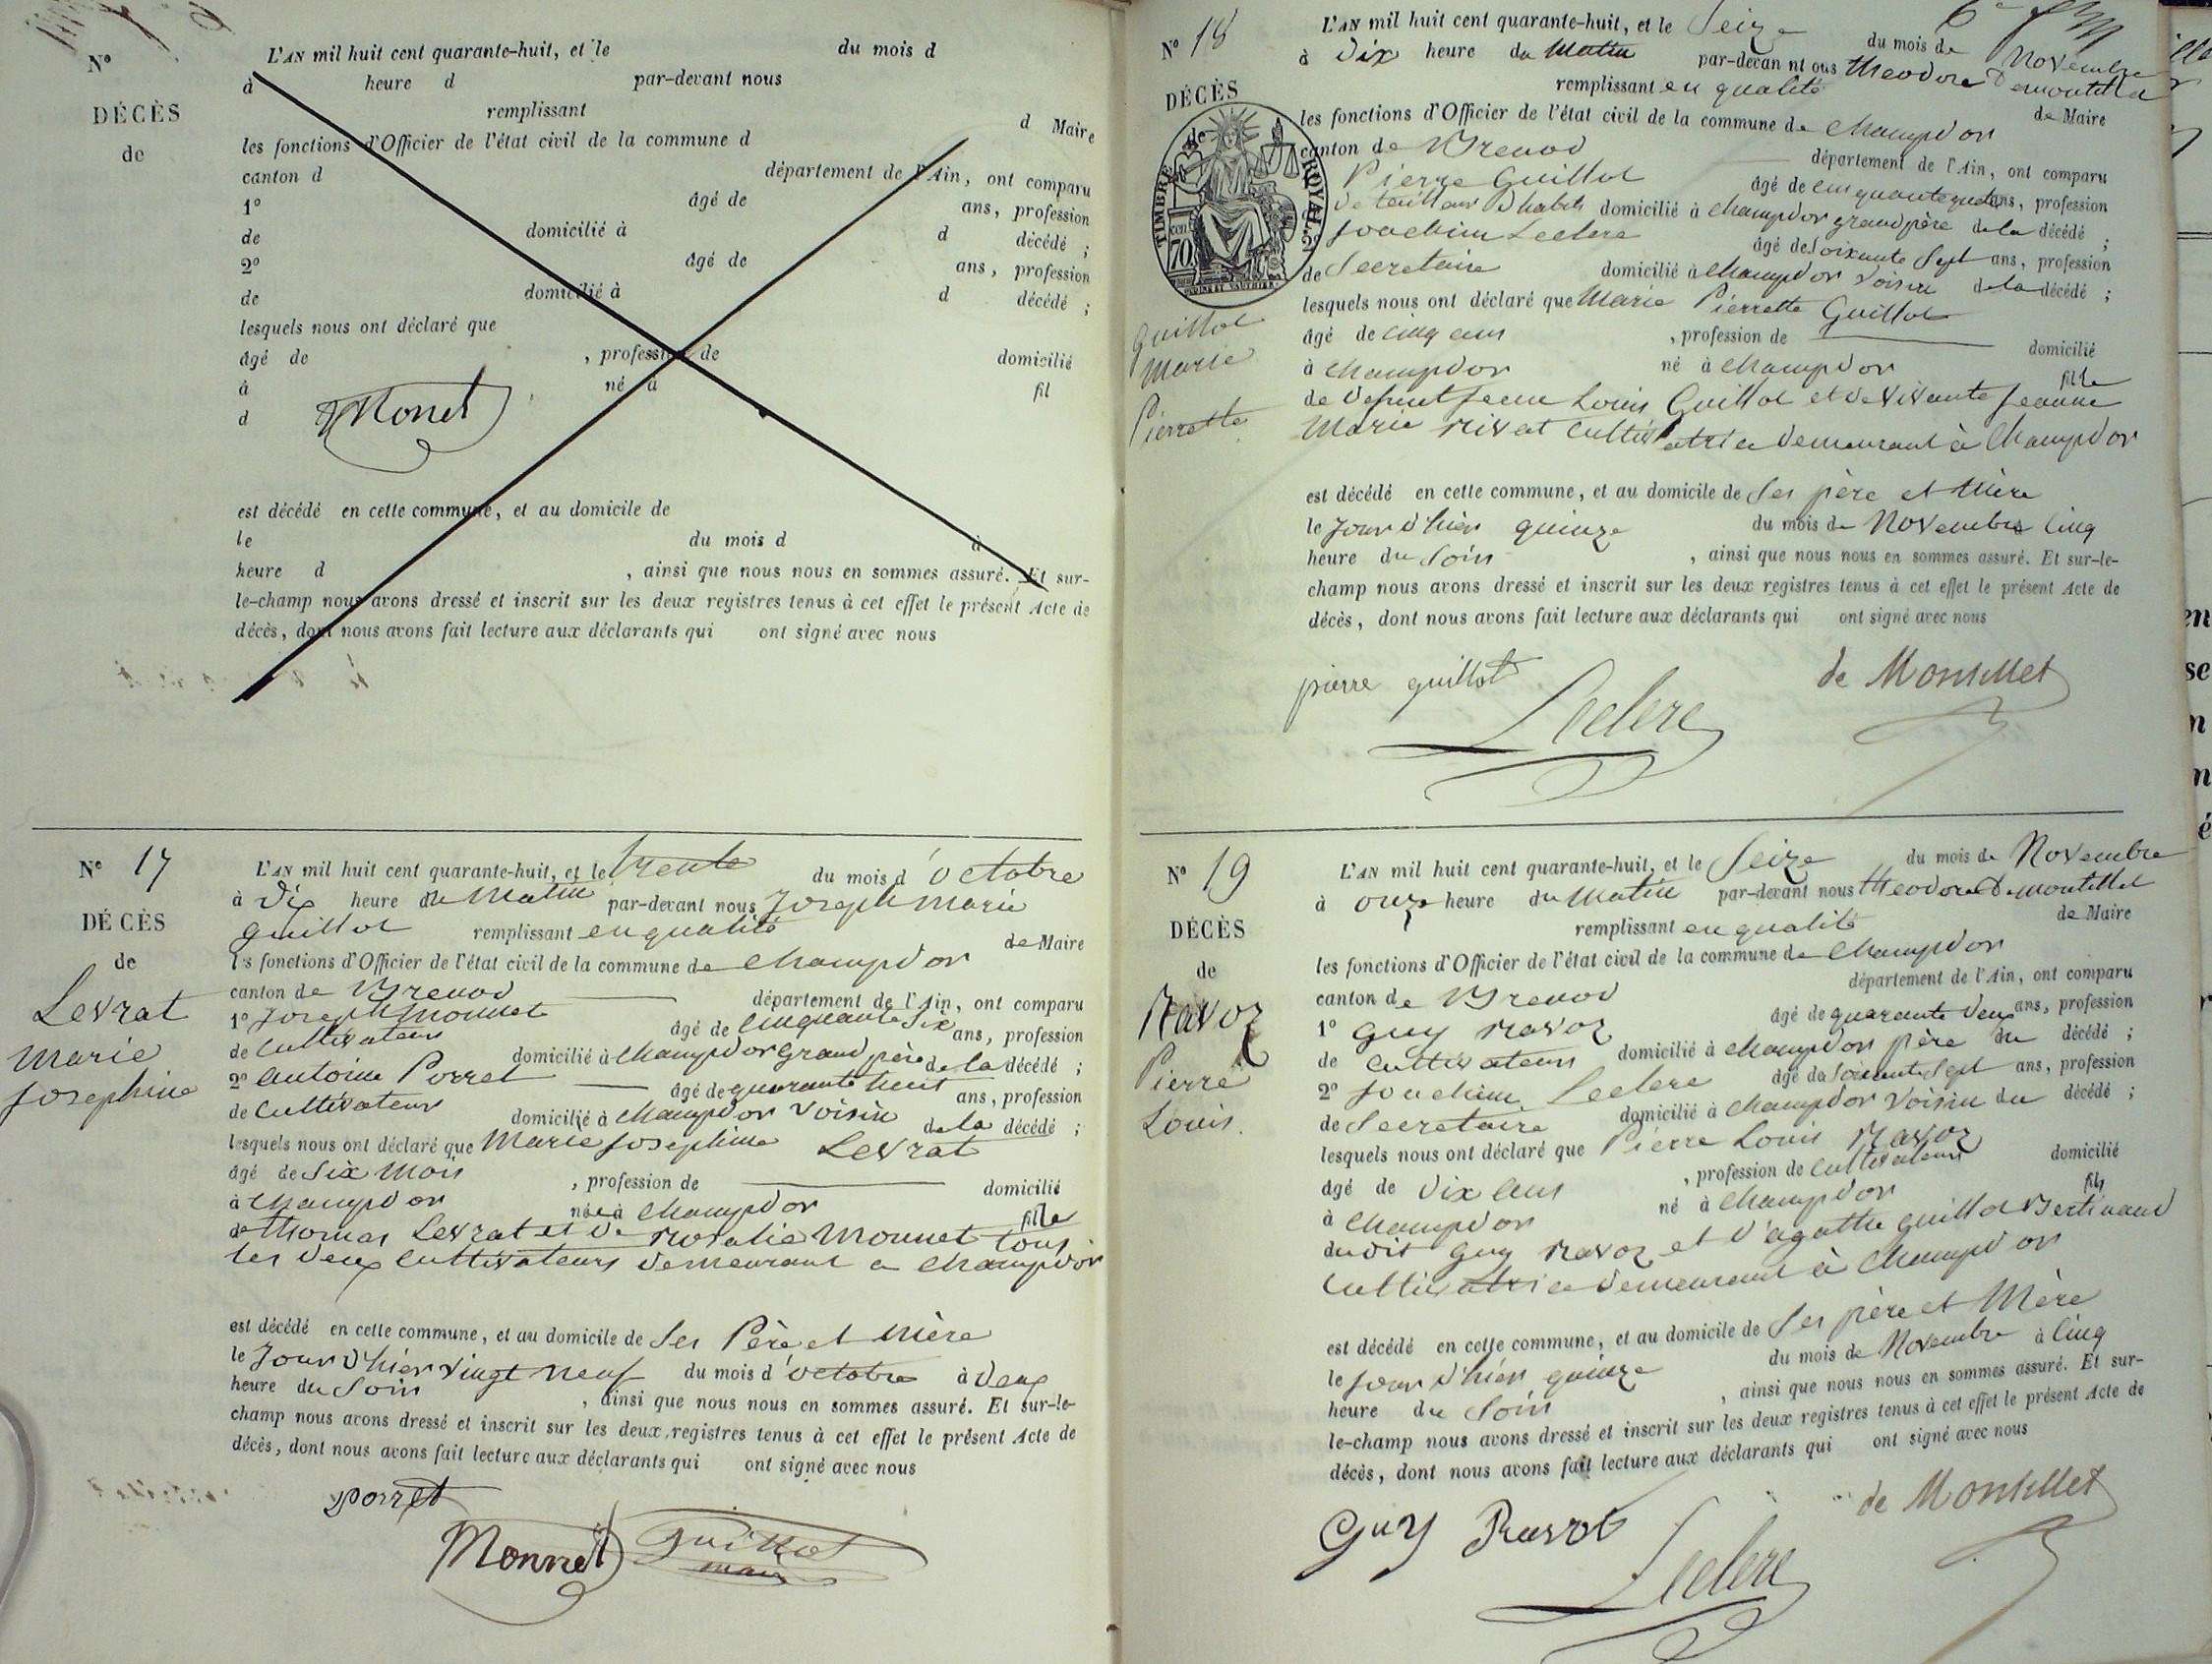 N°
DÉCÈS
de
L'AN mil huit cent quarante-huit, et le du mois d
à heure d par-devant nous
remplissant
d Maire
les fonctions d'Officier de l'état civil de la commune d
canton d département de l'Ain, ont comparu
1° âgé de ans, profession
de domicilié à d décédé ;
2° âgé de ans, profession
de domicilié à d décédé ;
lesquels nous ont déclaré que
âgé de , profession de domicilié
à né à fil
d Monet
est décédé en cette commune, et au domicile de
le du mois d à
heure d , ainsi que nous nous en sommes assuré. Et sur-
le-champ nous avons dressé et inscrit sur les deux registres tenus à cet effet le présent Acte de
décès, dont nous avons fait lecture aux déclarants qui ont signé avec nous
N° 17
DÉCÈS
de
Levrat
Marie
Josephine
L'AN mil huit cent quarante-huit, et le trente du mois d'octobre
à Dix heure du Matin par-devant nous Joseph Marie
Guillot remplissant en qualité
de Maire
les fonctions d'Officier de l'état civil de la commune de Champdor
canton de Brenod département de l'Ain, ont comparu
1° Joseph Monnet âgé de Cinquante Six ans, profession
de Cultivateur domicilié à Champdor Grand père de la décédé ;
2° Antoine Porret âgé de quarante huit ans, profession
de Cultivateur domicilié à Champdor Voisin de la décédé ;
lesquels nous ont déclaré que Marie Josephine Levrat
âgé de Six Mois , profession de domicilié
à Champdor née à Champdor fille
de Thomas Levrat et de Rosalie Monnet tous
les deux Cultivateurs demeurant a Champdor
est décédé en cette commune, et au domicile de Ses Père et Mère
le Jour d'hier Vingt neuf du mois d'octobre à Deux
heure du Soir , ainsi que nous nous en sommes assuré. Et sur-le-
champ nous avons dressé et inscrit sur les deux registres tenus à cet effet le présent Acte de
décès, dont nous avons fait lecture aux déclarants qui ont signé avec nous
porret
Monnet Guillot
maire
N° 18
DÉCÈS
de
TIMBRE ROYAL
70
Guillot
Marie
Pierrette
L'AN mil huit cent quarante-huit, et le Seize du mois de Novembre
à Dix heure du Matin par-devan nt ous theodore Demontillet
remplissant en qualité
de Maire
les fonctions d'Officier de l'état civil de la commune de Champdor
canton de Brenod département de l'Ain, ont comparu
Pierre Guillot âgé de cinquante ans, profession
de tailleur d'habits domicilié à Champdor grand père de la décédé ;
Joachim Leclere âgé de Soixante Sept ans, profession
de Secretaire domicilié à Champdor Voisin de la décédé ;
lesquels nous ont déclaré que Marie Pierrette Guillot
âgé de cinq ans , profession de domicilié
à Champdor né à Champdor fille
de defunt Jean Louis Guillot et de Vivante Jeanne
Marie Rivat Cultivatrice demeurant à Champdor
est décédé en cette commune, et au domicile de Ses père et Mère
le Jour d'hier quinze du mois de Novembre Cinq
heure du Soir , ainsi que nous nous en sommes assuré. Et sur-le-
champ nous avons dressé et inscrit sur les deux registres tenus à cet effet le présent Acte de
décès, dont nous avons fait lecture aux déclarants qui ont signé avec nous
pierre guillot de Montillet
Leclere
N° 19
DÉCÈS
de
Ravoz
Pierre
Louis.
L'AN mil huit cent quarante-huit, et le Seize du mois de Novembre
à onze heure du Matin par-devant nous theodore Demontillet
remplissant en qualité
de Maire
les fonctions d'Officier de l'état civil de la commune de Champdor
canton de Brenod département de l'Ain, ont comparu
1° Guy Ravoz âgé de quarante deux ans, profession
de Cultivateur domicilié à Champdor père du décédé ;
2° Joachim Leclere âgé de Soixante Sept ans, profession
de Secretaire domicilié à Champdor Voisin du décédé ;
lesquels nous ont déclaré que Pierre Louis Ravoz
âgé de Dix ans , profession de Cultivateur domicilié
à Champdor né à Champdor fils
dudit Guy Ravoz et d'agathe guillot Bertinand
Cultivatrice demeurant à Champdor
est décédé en cette commune, et au domicile de Ses père et Mère
le Jour d'hier quinze du mois de Novembre à Cinq
heure du Soir , ainsi que nous nous en sommes assuré. Et sur-
le-champ nous avons dressé et inscrit sur les deux registres tenus à cet effet le présent Acte de
décès, dont nous avons fait lecture aux déclarants qui ont signé avec nous
Guy Ravot de Montillet
Leclere